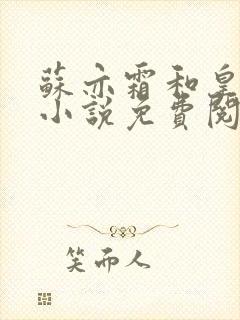 蘇亦霜和皇
小說免費閱
笑而人